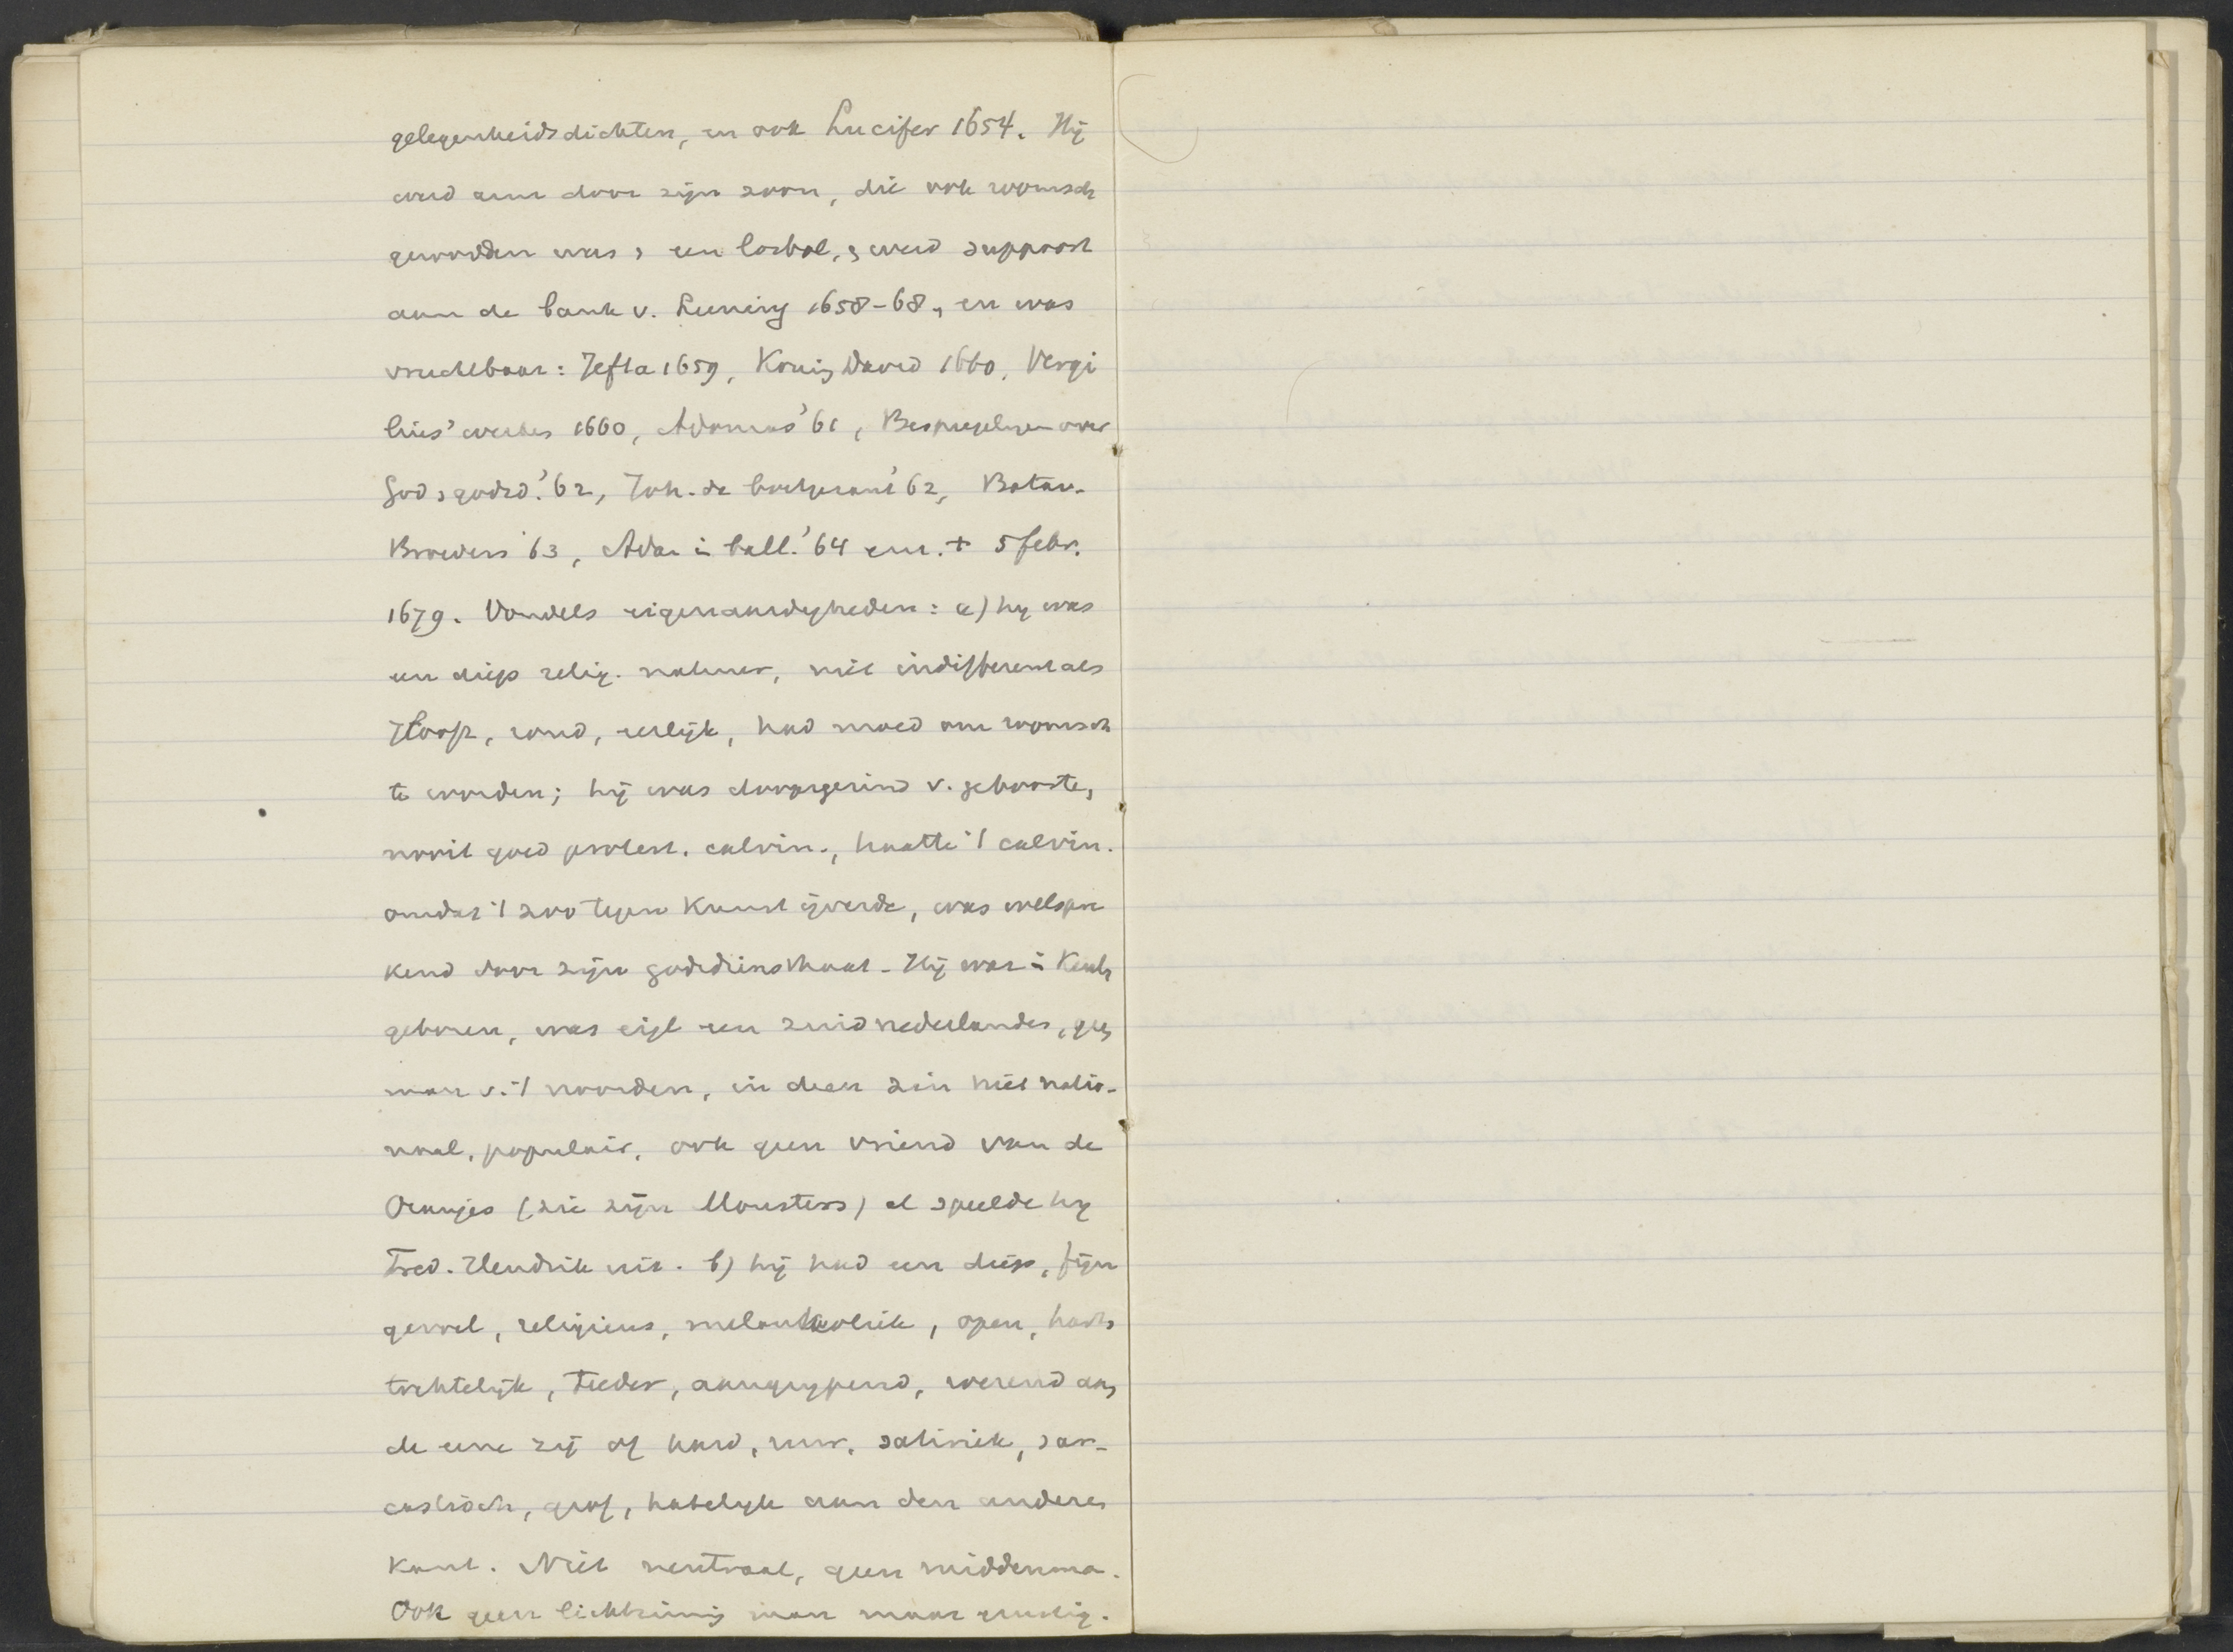 gelegenheidsdichten, en ook Lucifer 1654. Hij
werd arm door zijn zoon, die ook roomsch
geworden was, een losbol, werd suppoost
aan de bank v. Leening 1658-68, en was
vruchtbaar: Jefta 1659, Koning David 1660, Vergi
lius' werken 1660, Adonias '61, Bespiegelingen over
God godsd. '62, Joh. de boetgezant '62, Batav.
Broeders '63, Adam in ball. '64 enz. + 5 febr.
1679. Vondels eigenaardigheden: a) hij was
een diep relig. natuur, niet indifferent als
Hooft, rond, eerlijk, had moed om roomsch
te worden; hij was doopsgezind v. geboorte,
nooit goed protest. calvin., haatte 't calvin.
omdat 't zoo tegen kunst ijverde, was welspre
kend door zijn godsdiensthaat - Hij was in Keuln
geboren, was eigl een zuidnederlander, geen
man v. 't noorden, in deen zin niet natio-
naal, populair, ook geen vriend van de
Oranjes (zie zijn Monsters) al speelde hij
Fred. Hendrik uit. b) hij had een diep, fijn
gevoel, religieus, melankoliek, open, harts
tochtelijk, teeder, aangrijpend, roerend aan
de eene zij of hard, ruw, satiriek, sar-
castisch, grof, hatelijk aan den anderen
kant. Niet neutraal, geen middenma.
Ook geen lichtzinnig man maar ernstig.